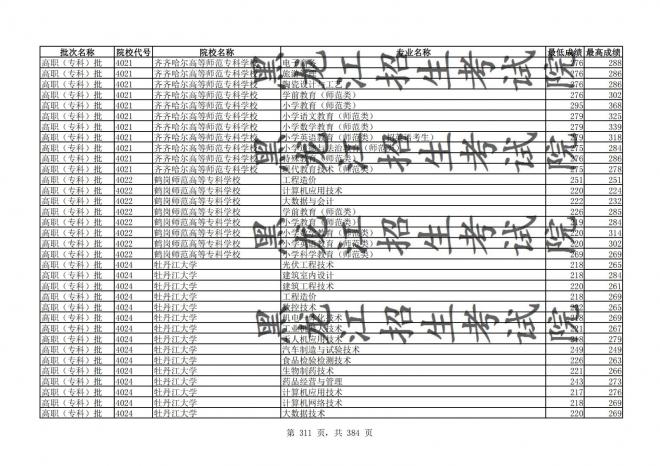 批次名称 院校代号 院校名称 专业名称 最低成绩 最高成绩
高职（专科）批 4021 齐齐哈尔高等师范专科学校 电子商务 276 288
高职（专科）批 4021 齐齐哈尔高等师范专科学校 旅游管理 276 286
高职（专科）批 4021 齐齐哈尔高等师范专科学校 陶瓷设计与工艺 276 286
高职（专科）批 4021 齐齐哈尔高等师范专科学校 学前教育（师范类） 276 302
高职（专科）批 4021 齐齐哈尔高等师范专科学校 小学教育（师范类） 295 368
高职（专科）批 4021 齐齐哈尔高等师范专科学校 小学语文教育（师范类） 279 325
高职（专科）批 4021 齐齐哈尔高等师范专科学校 小学数学教育（师范类） 279 339
高职（专科）批 4021 齐齐哈尔高等师范专科学校 小学英语教育（师范类） 279 318
高职（专科）批 4021 齐齐哈尔高等师范专科学校 275 284
高职（专科）批 4021 齐齐哈尔高等师范专科学校 特殊教育（师范类） 276 286
高职（专科）批 4021 齐齐哈尔高等师范专科学校 现代教育技术（师范类） 275 278
高职（专科）批 4022 鹤岗师范高等专科学校 工程造价 251 251
高职（专科）批 4022 鹤岗师范高等专科学校 计算机应用技术 220 224
高职（专科）批 4022 鹤岗师范高等专科学校 大数据与会计 222 232
高职（专科）批 4022 鹤岗师范高等专科学校 学前教育（师范类） 226 285
高职（专科）批 4022 鹤岗师范高等专科学校 小学教育（师范类） 219 284
高职（专科）批 4022 鹤岗师范高等专科学校 220 314
高职（专科）批 4022 鹤岗师范高等专科学校 220 302
高职（专科）批 4022 鹤岗师范高等专科学校 小学科学教育（师范类） 269 269
高职（专科）批 4024 牡丹江大学 光伏工程技术 218 265
高职（专科）批 4024 牡丹江大学 建筑室内设计 218 284
高职（专科）批 4024 牡丹江大学 建筑工程技术 220 261
高职（专科）批 4024 牡丹江大学 工程造价 218 269
高职（专科）批 4024 牡丹江大学 数控技术 222 265
高职（专科）批 4024 牡丹江大学 机电一体化技术 218 269
高职（专科）批 4024 牡丹江大学 工业机器人技术 221 267
高职（专科）批 4024 牡丹江大学 无人机应用技术 218 279
高职（专科）批 4024 牡丹江大学 汽车制造与试验技术 249 249
高职（专科）批 4024 牡丹江大学 食品检验检测技术 226 263
高职（专科）批 4024 牡丹江大学 生物制药技术 221 266
高职（专科）批 4024 牡丹江大学 药品经营与管理 243 273
高职（专科）批 4024 牡丹江大学 计算机应用技术 217 276
高职（专科）批 4024 牡丹江大学 计算机网络技术 218 269
高职（专科）批 4024 牡丹江大学 大数据技术 220 269
黑龙江招生考试院
黑龙江招生考试院
黑龙江招生考试院
第 311 页，共 384 页